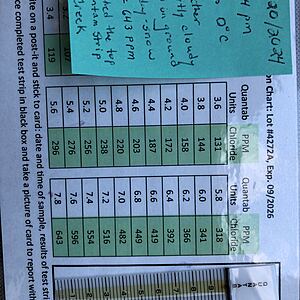 20/2024
4 pm
0°C
tly cloudy
on ground
snow
643 ppm
the top
strip
Creek
on Chart: Lot #4272A, Exp. 09/2026
Quantab Units PPM Chloride Quantab Units PPM Chloride
3.6 131 5.8 318
3.8 144 6.0 341
4.0 158 6.2 366
4.2 172 6.4 392
4.4 187 6.6 419
4.6 203 6.8 449
4.8 220 7.0 482
5.0 238 7.2 516
5.2 256 7.4 554
3.2 5.4 276 7.6 596
3.4 119 5.6 296 7.8 643
rite on a post-it and stick to card: date and time of sample, results of test stri
ce completed test strip in black box and take a picture of card to report with
QUANTAB